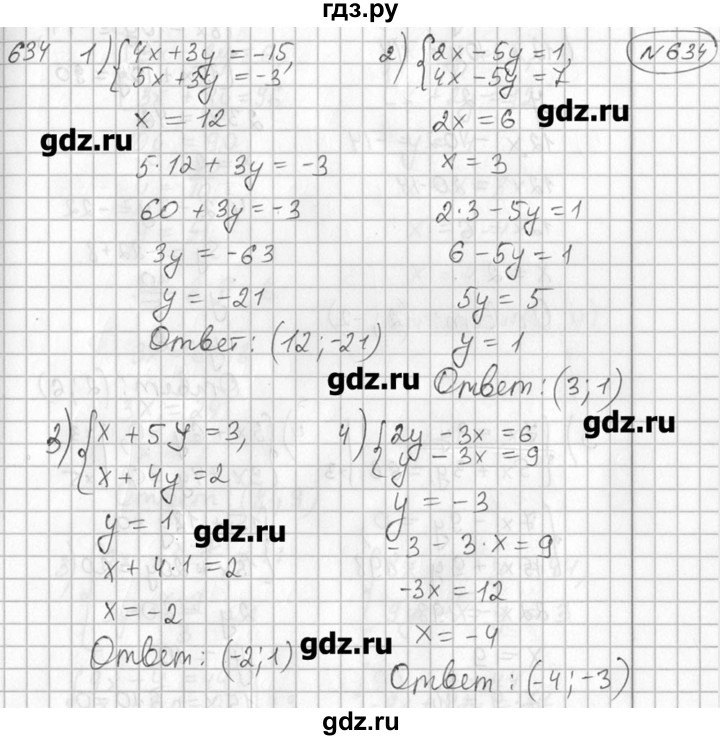 гдз.ру
634 1) { 4x + 3y = -15,
5x + 3y = -3
x = 12
5·12 + 3y = -3
60 + 3y = -3
3y = -63
y = -21
Ответ: (12; -21)
2) { 2x - 5y = 1,
4x - 5y = 7
2x = 6
x = 3
2·3 - 5y = 1
6 - 5y = 1
5y = 5
y = 1
Ответ: (3; 1)
№634
gdz.ru
gdz.ru
gdz.ru
gdz.ru
3) { x + 5y = 3,
x + 4y = 2
y = 1
x + 4·1 = 2
x = -2
Ответ: (-2; 1)
4) { 2y - 3x = 6
y - 3x = 9
y = -3
-3 - 3·x = 9
-3x = 12
x = -4
Ответ: (-4; -3)
gdz.ru
gdz.ru
gdz.ru